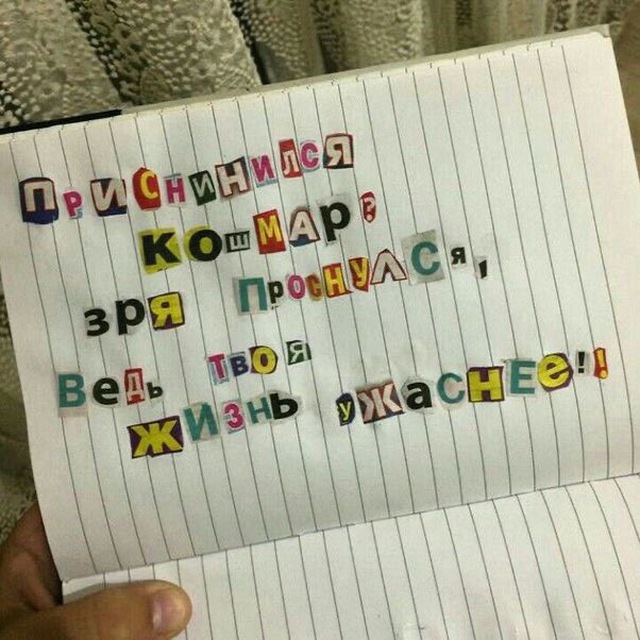 ПрИСНИНИЛСЯ
КОшМАр?
зря ПРОСНУЛСя,
Ведь ТВОЯ
ЖИЗНЬ УЖаСНЕе!!